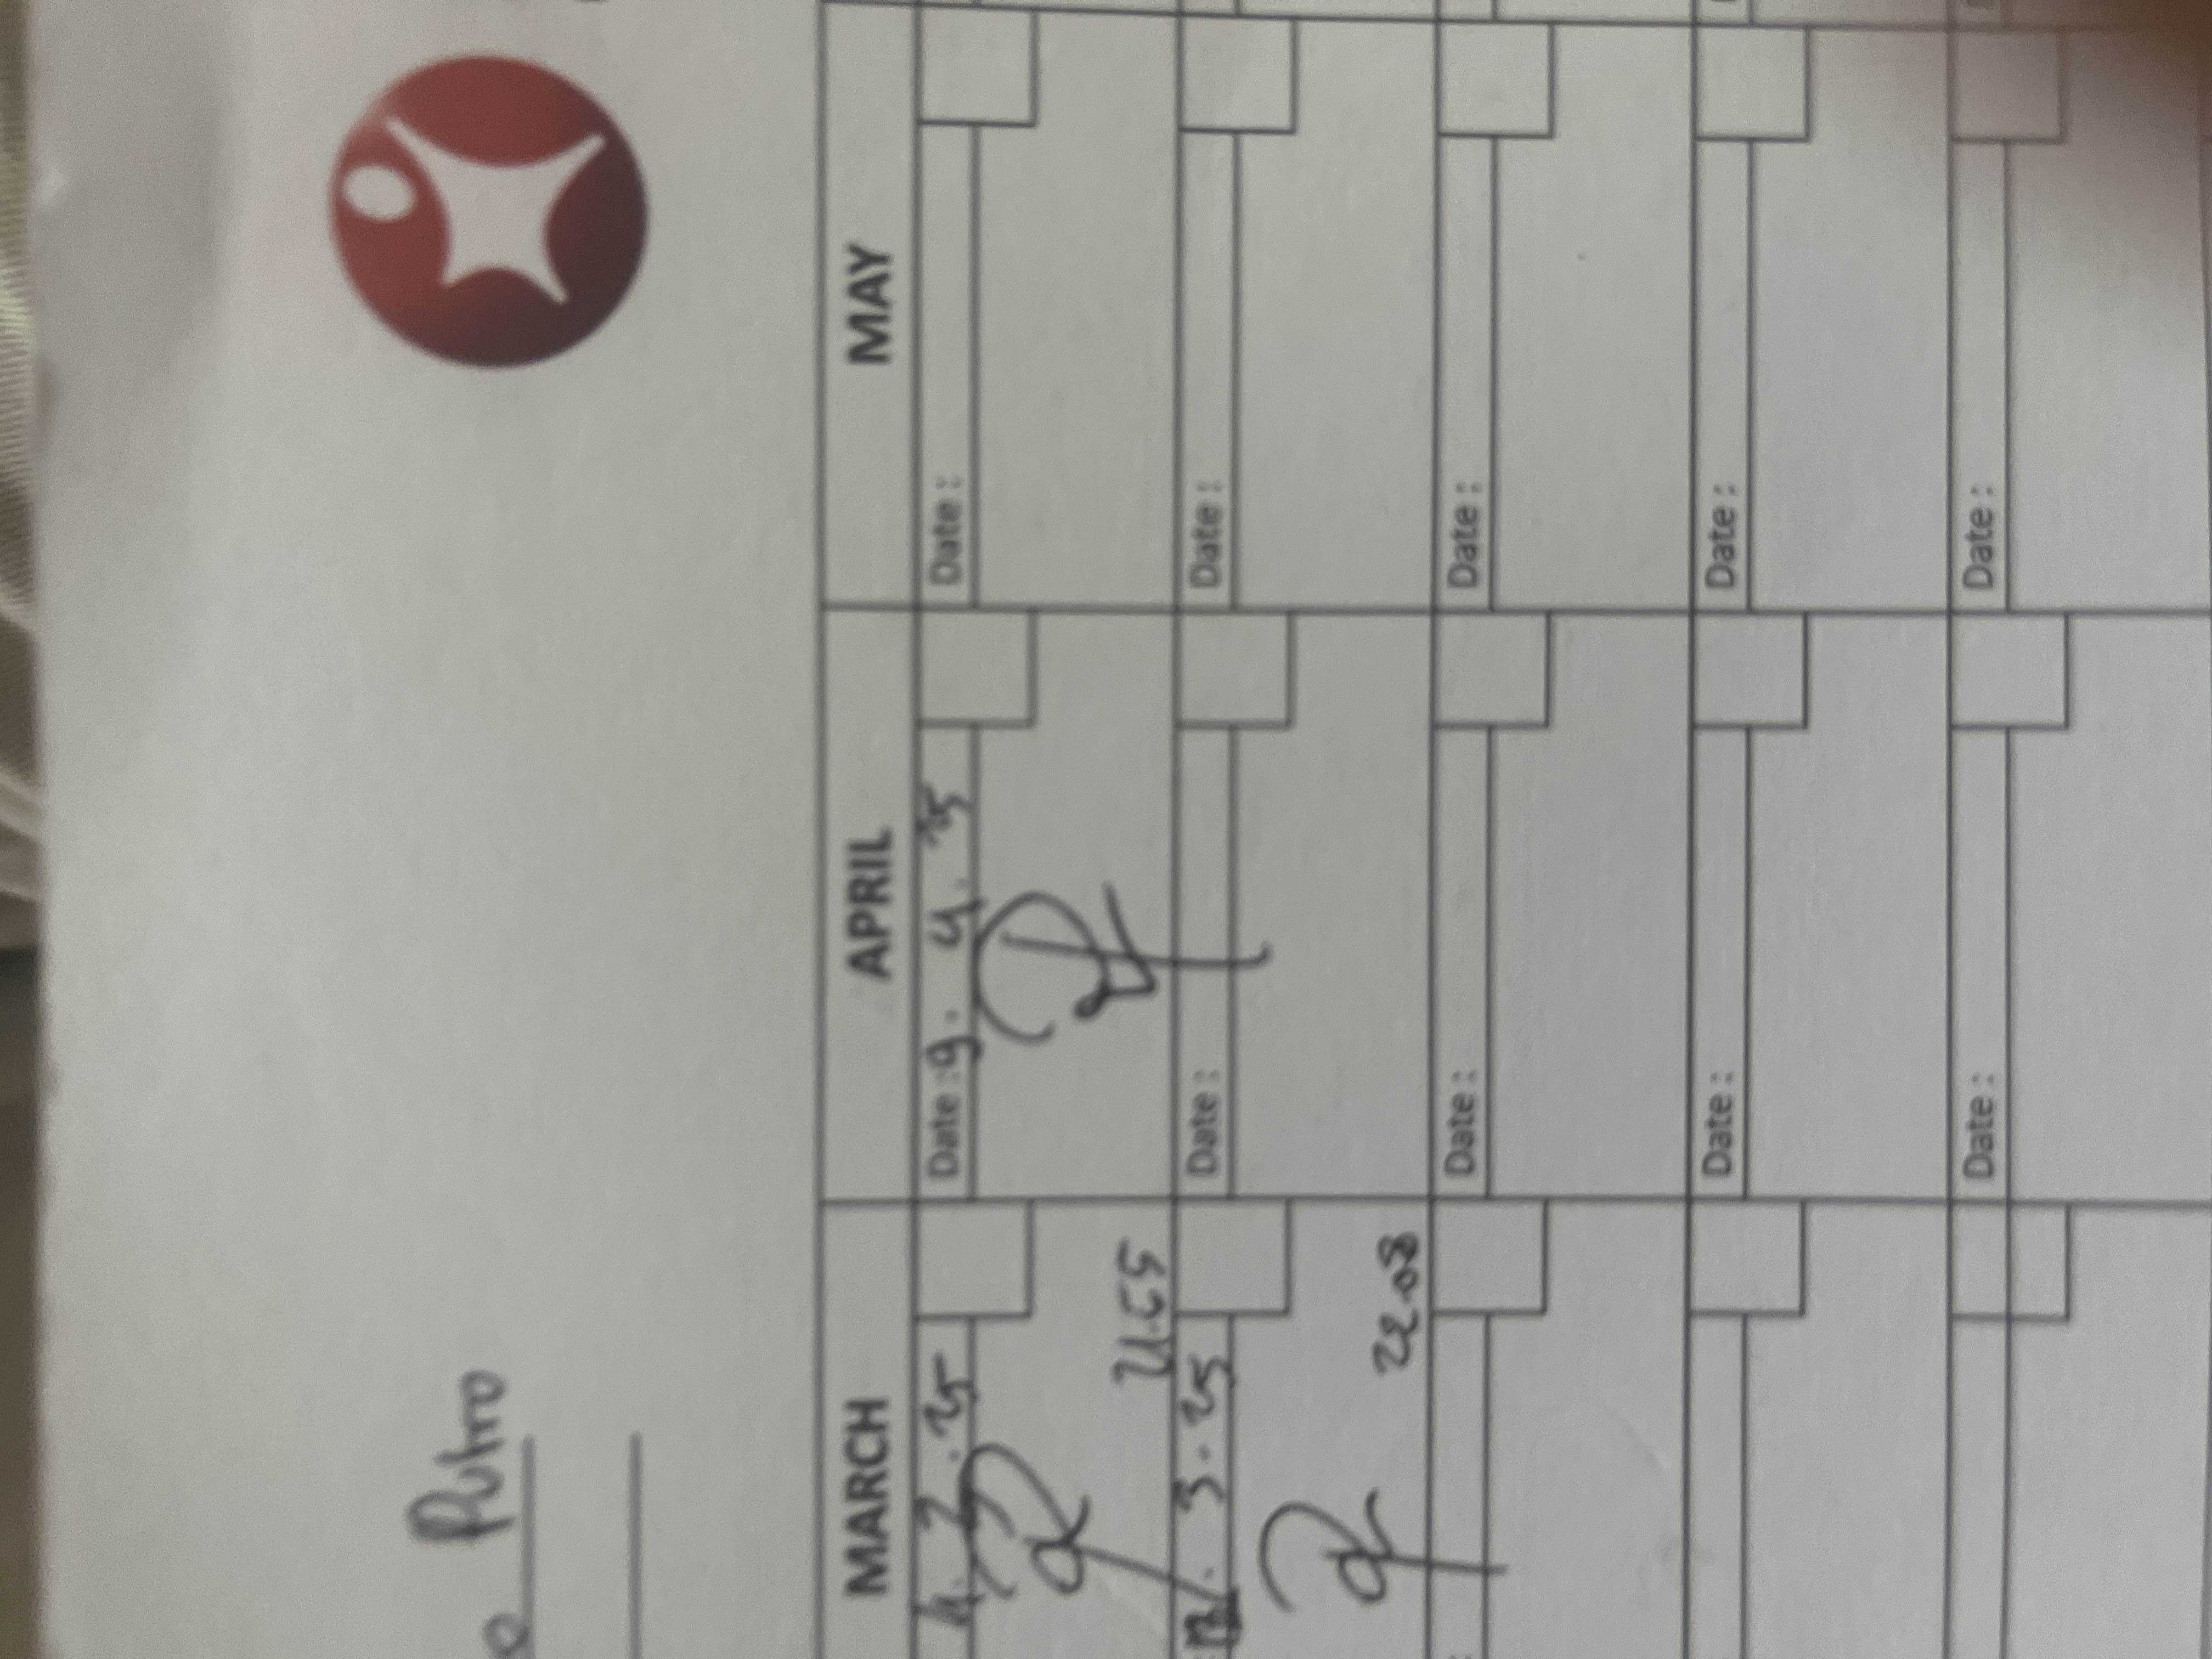 Putro
MARCH APRIL MAY
4. 3. 25 Date : 9. 4. 25 Date :
21.55
12. 3. 25 Date : Date :
22.08
Date : Date :
Date : Date :
Date : Date :